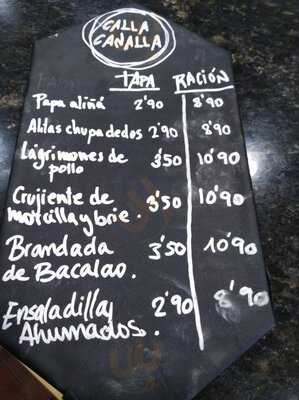 CALLA
CANALLA
TAPA RACIÓN
Papa aliñá 2'90 8'90
Alitas chupadedos 2'90 8'90
Lágrimones de
pollo 3'50 10'90
Crujiente de
morcilla y brie. 3'50 10'90
Brandada
de Bacalao. 3'50 10'90
Ensaladilla y
Ahumados. 2'90 8'90